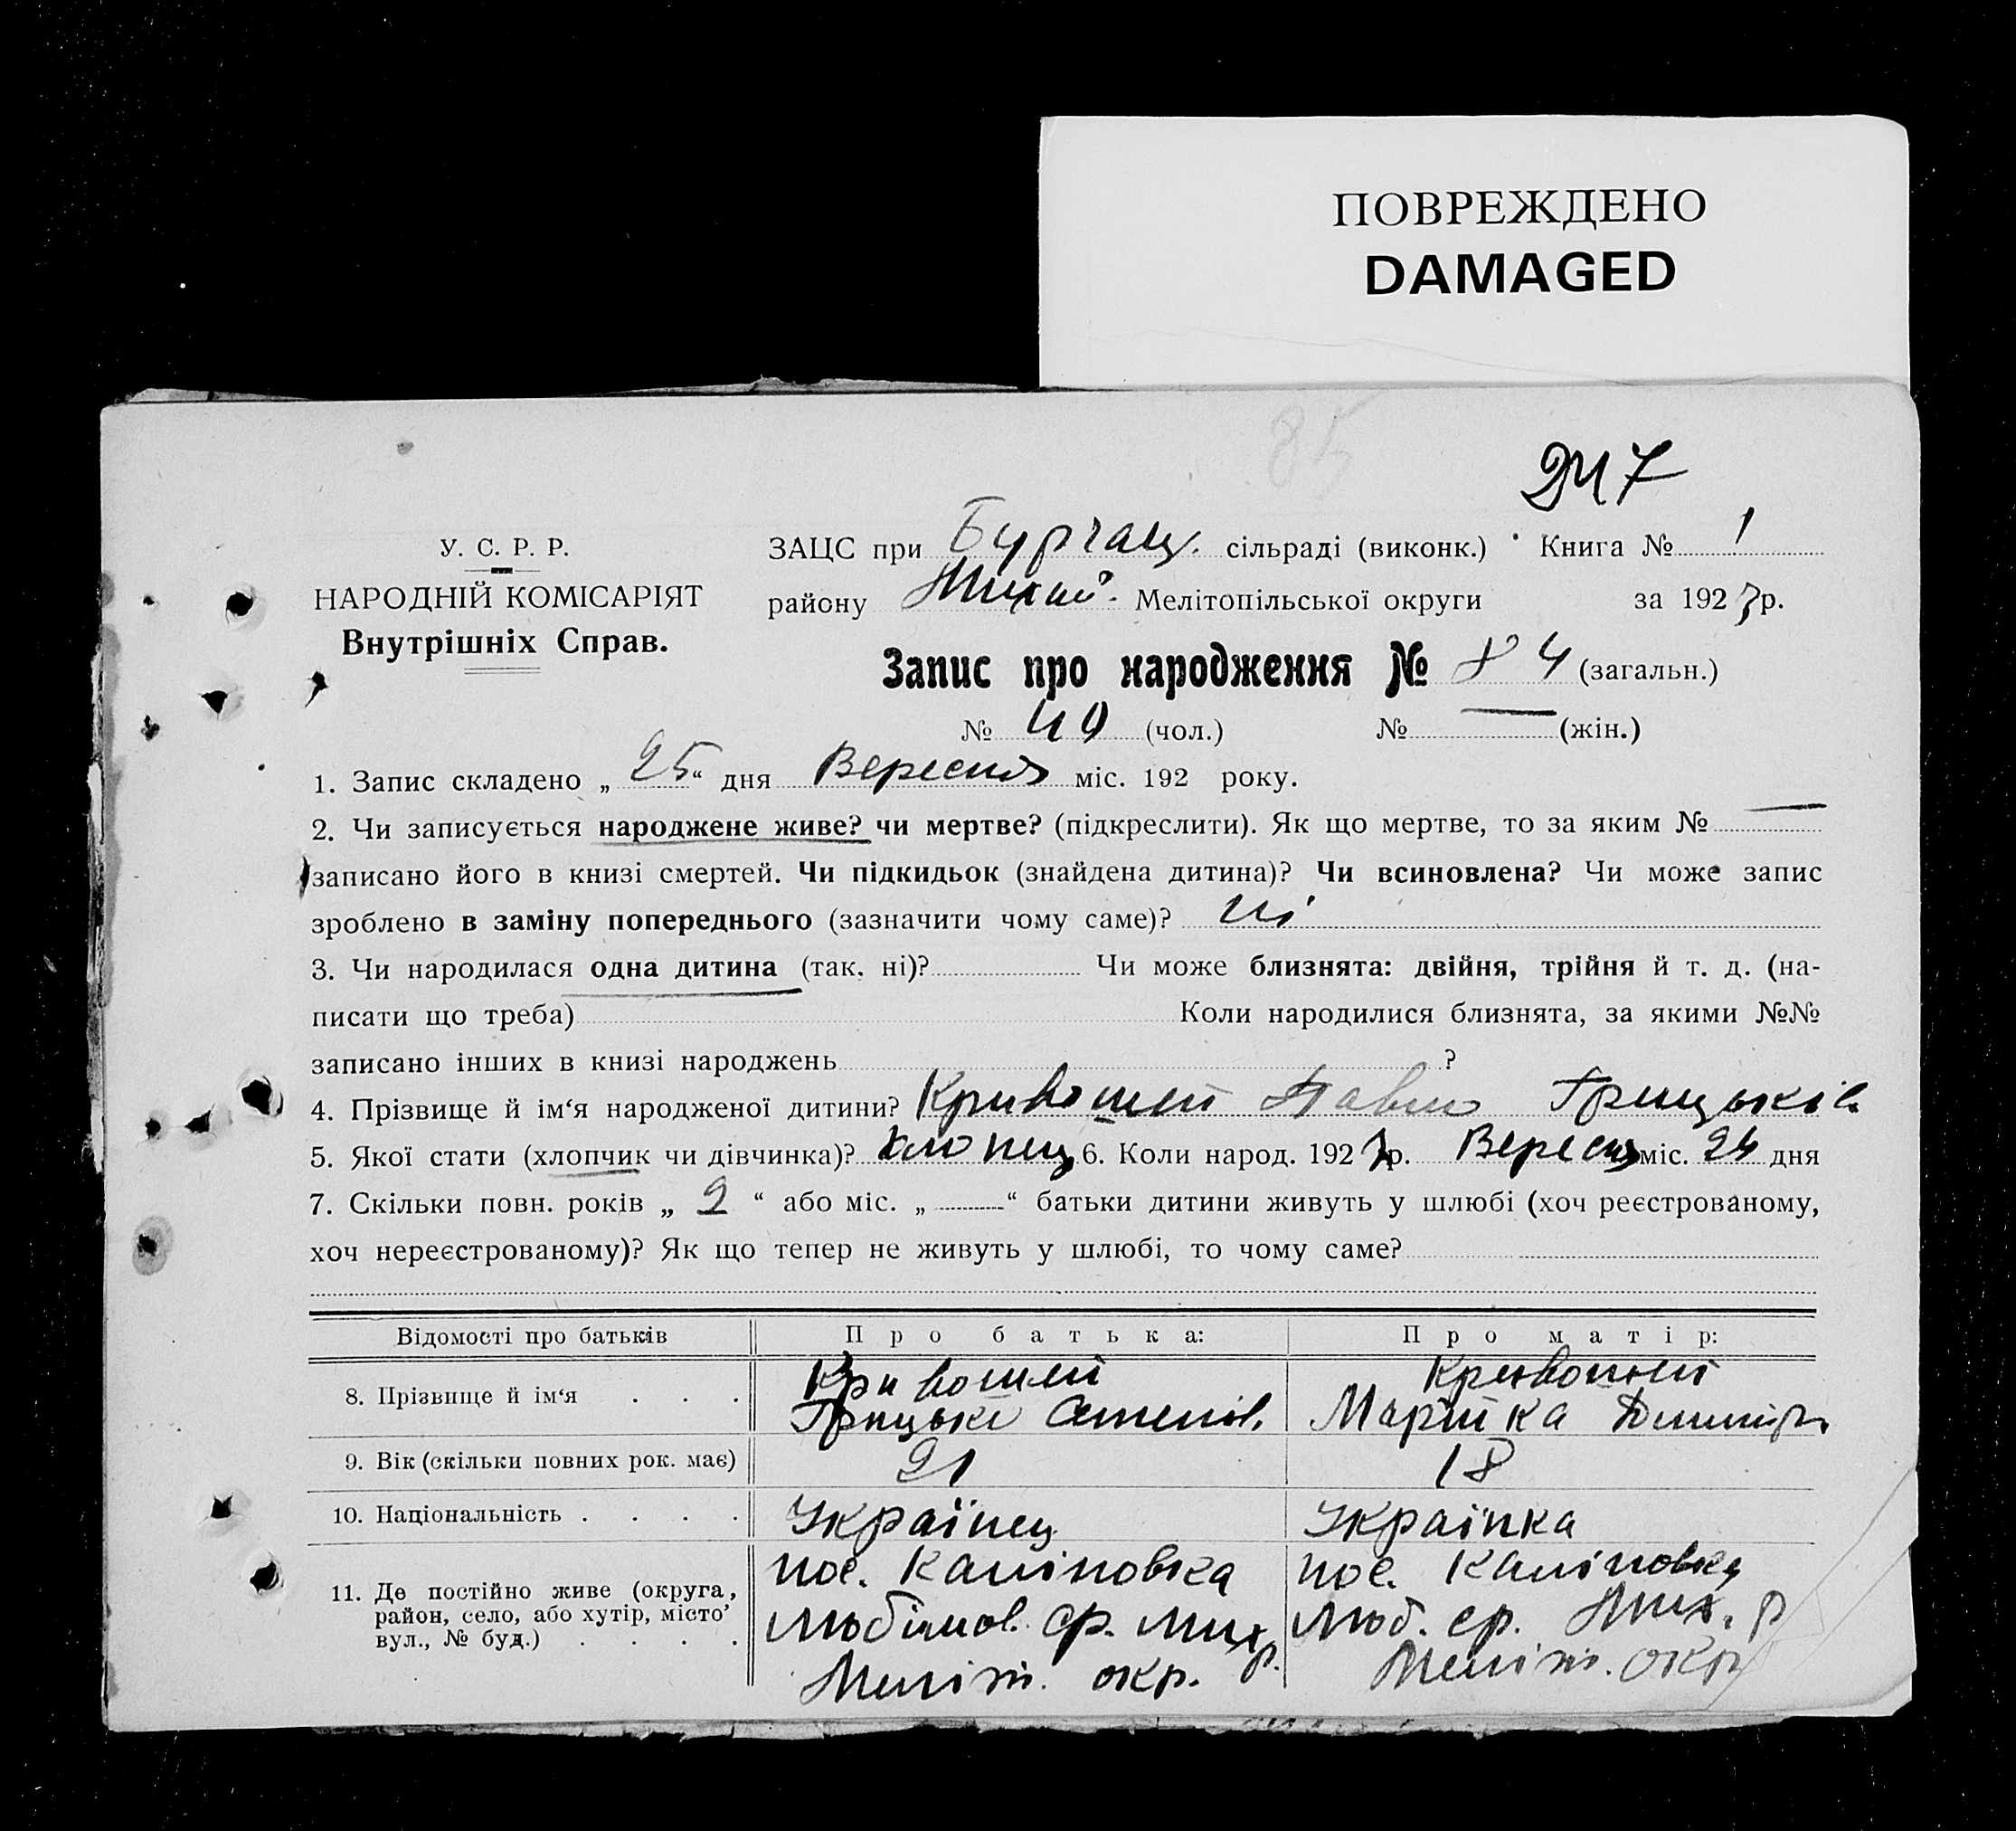 ПОВРЕЖДЕНО
DAMAGED
85
247
У. С. Р. Р.
НАРОДНІЙ КОМІСАРІЯТ
Внутрішніх Справ.
ЗАЦС при Бурчац. сільраді (виконк.) Книга № 1
району Михай. Мелітопільської округи за 1927 р.
Запис про народження № 84 (загальн.)
№ 49 (чол.) № — (жін.)
1. Запис складено „ 25 “ дня Вересня міс. 192 року.
2. Чи записується народжене живе? чи мертве? (підкреслити). Як що мертве, то за яким № —
записано його в книзі смертей. Чи підкидьок (знайдена дитина)? Чи всиновлена? Чи може запис
зроблено в заміну попереднього (зазначити чому саме)? ні
3. Чи народилася одна дитина (так, ні)? Чи може близнята: двійня, трійня й т. д. (на-
писати що треба) Коли народилися близнята, за якими №№
записано інших в книзі народжень ?
4. Прізвище й ім‘я народженої дитини? Кривошей Павло Грицьків
5. Якої стати (хлопчик чи дівчинка)? хлопец 6. Коли народ. 1927 р. Вересня міс. 24 дня
7. Скільки повн. років „ 2 “ або міс. „ “ батьки дитини живуть у шлюбі (хоч реєстрованому,
хоч нереєстрованому)? Як що тепер не живуть у шлюбі, то чому саме?
Відомості про батьків Про батька: Про матір:
8. Прізвище й ім‘я . . . Кривошей Кривошей
Грицько Семенів. Марійка Димитр.
9. Вік (скільки повних рок. має) 21 18
10. Національність . . . . Українец Українка
11. Де постійно живе (округа, район, село, або хутір, місто, вул., № буд.) . . . .
пос. Каліновка пос. Каліновка
Любімов. ср. Мих. р. Люб. ср. Мих. р
Меліт. окр. Меліт. окр